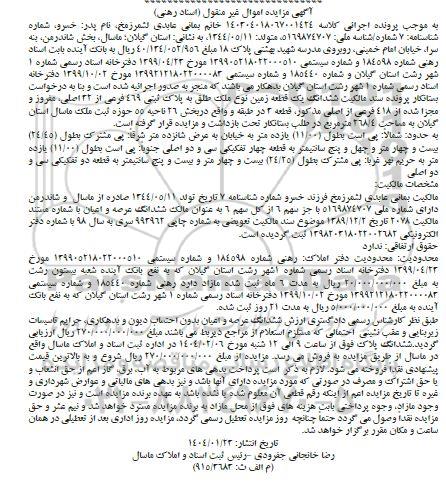 آگهی مزایده اموال غیر منقول (اسناد رهنی)
به موجب پرونده اجرائی کلاسه ۱۴۰۳۰۴۰۱۸۰۶۷۰۰۱۴۲۴ خانم یمانی عابدی لشمرزمخ، نام پدر: خسرو، شماره
شناسنامه: ۷ شماره/شناسه ملی: ۵۱۶۹۸۷۴۷۰۷، متولد: ۱۳۴۴/۰۵/۱۱، به نشانی: استان گیلان، ماسال، بخش شاندرمن، بنه
سرا، خیابان امام خمینی، روبروی مدرسه شهید بهشتی پلاک ۱۸ مبلغ ۴۰/۱۳۴/۰۵۲/۹۵۶ ریال به بانک آینده بابت اسناد
رهنی شماره ۱۸۴۵۹۸ و شماره سیستمی ۱۳۹۹۰۵۲۱۸۰۲۲۰۰۰۵۱۰ مورخ ۱۳۹۹/۰۴/۲۳ دفترخانه اسناد رسمی شماره ۱
شهر رشت استان گیلان و شماره ۱۸۵۴۴۰ و شماره سیستمی ۱۳۹۹۲۱۲۱۸۰۲۲۰۰۰۰۸۳ مورخ ۱۳۹۹/۱۰/۰۲ دفترخانه
اسناد رسمی شماره ۱ شهر رشت استان گیلان بدهکار می باشد که منجر به صدور اجرائیه شده است و بنا به درخواست
بستانکار پرونده سند مالکیت ششدانگ یک قطعه زمین نوع ملک طلق به پلاک ثبتی ۴۶۹ فرعی از ۳۲ اصلی، مفروز و
مجزا شده از ۴۱۸ فرعی از اصلی مذکور، قطعه ۳ در طبقه و واقع در بخش ۲۶ ناحیه ۵۵ حوزه ثبت ملک ماسال استان
گیلان به مساحت ۲۶۸/۴ مترمربع در طلب بستانکار تحت بازداشت و مزایده قرار گرفته است.
به حدود: شمالا: پی است بطول (۱۱/۰۰) یازده متر به خیابان به عرض شانزده متر شرقا: پی مشترک بطول (۲۴/۴۵)
بیست و چهار متر و چهل و پنج سانتیمتر به قطعه چهار تفکیکی سی و دو اصلی جنوبا: پی است بطول (۱۱/۰۰) یازده
متر به حریم نهر غربا: پی مشترک بطول (۲۴/۲۵) بیست و چهار متر و بیست و پنج سانتیمتر به قطعه دو تفکیکی سی و
دو اصلی
مشخصات مالکیت:
مالکیت یمانی عابدی لشمرزمخ فرزند خسرو شماره شناسنامه ۷ تاریخ تولد ۱۳۴۴/۰۵/۱۱ صادره از ماسال و شاندرمن
دارای شماره ملی ۵۱۶۹۸۷۴۷۰۷ با جز سهم ۶ از کل سهم ۶ به عنوان مالک ششدانگ عرصه و اعیان با شماره مستند
مالکیت ۲۰۷۸ تاریخ ۱۳۸۹/۱۲/۲ موضوع سند مالکیت تعویضی به شماره چاپی ۹۹۳۹۶۲ سری به سال ۹۸ با شماره دفتر
الکترونیکی ۱۳۹۸۲۰۳۱۸۰۲۲۰۰۲۶۸۲ ثبت گردیده است.
حقوق ارتفاقی: ندارد
محدودیت: محدودیت دفتر املاک: رهنی شماره ۱۸۴۵۹۸ و شماره سیستمی ۱۳۹۹۰۵۲۱۸۰۲۲۰۰۰۵۱۰ مورخ
۱۳۹۹/۰۴/۲۳ دفترخانه اسناد رسمی شماره ۱شهر رشت استان گیلان که به نفع بانک آینده شعبه بیستون رشت
به مبلغ ۲۰/۰۰۰/۰۰۰/۰۰۰ ریال به مدت ۶ ماه ثبت شده مازاد دارد رهنی شماره ۱۸۵۴۴۰ و شماره سیستمی
۱۳۹۹۲۱۲۱۸۰۲۲۰۰۰۰۸۳ مورخ ۱۳۹۹/۱۰/۰۲ دفترخانه اسناد رسمی شماره ۱ شهر رشت استان گیلان که به نفع بانک
آینده به مبلغ ۵/۰۰۰/۰۰۰/۰۰۰ ریال به مدت ۲۱ روز ثبت شده.
طبق نظر کارشناس رسمی دادگستری ارزش ششدانگ عرصه و اعیان بدون احتساب دیون و بدهکاری، جرایم تاسیسات
زیربنایی و عقب نشینی احتمالی که مستلزم استعلام از مراجع ذیربط می باشد مبلغ ۲۷۰/۰۰۰/۰۰۰/۰۰۰ ریال ارزیابی
گردید.ششدانگ پلاک فوق از ساعت ۹ الی ۱۲ شنبه مورخ ۱۴۰۴/۰۲/۰۶ در اداره ثبت اسناد و املاک ماسال واقع
در ماسال از طریق مزایده به فروش می رسد. مزایده از مبلغ ۲۷۰/۰۰۰/۰۰۰/۰۰۰ ریال شروع و به بالاترین قیمت
پیشنهادی نقدا فروخته می شود. لازم به ذکر است پرداخت بدهی های مربوط به آب، برق، گاز اعم از حق انشعاب و
یا حق اشتراک و مصرف در صورتی که مورد مزایده دارای آنها باشد و نیز بدهی های مالیاتی و عوارض شهرداری و
غیره تا تاریخ مزایده اعم از اینکه رقم قطعی آن معلوم شده یا نشده باشد به عهده برنده مزایده است و نیز در صورت
وجود مازاد، وجوه پرداختی بابت هزینه های فوق از محل مازاد به برنده مزایده مسترد خواهد شد و نیم عشر و حق
مزایده نقدا وصول می گردد ضمنا چنانچه روز مزایده تعطیل رسمی گردد، مزایده روز اداری بعد از تعطیلی در همان
ساعت و مکان مقرر برگزار خواهد شد.
تاریخ انتشار: ۱۴۰۴/۰۱/۲۳
رضا خانجانی جفرودی -رئیس ثبت اسناد و املاک ماسال
(م الف ث: ۹۱۵/۳۶۸۳)